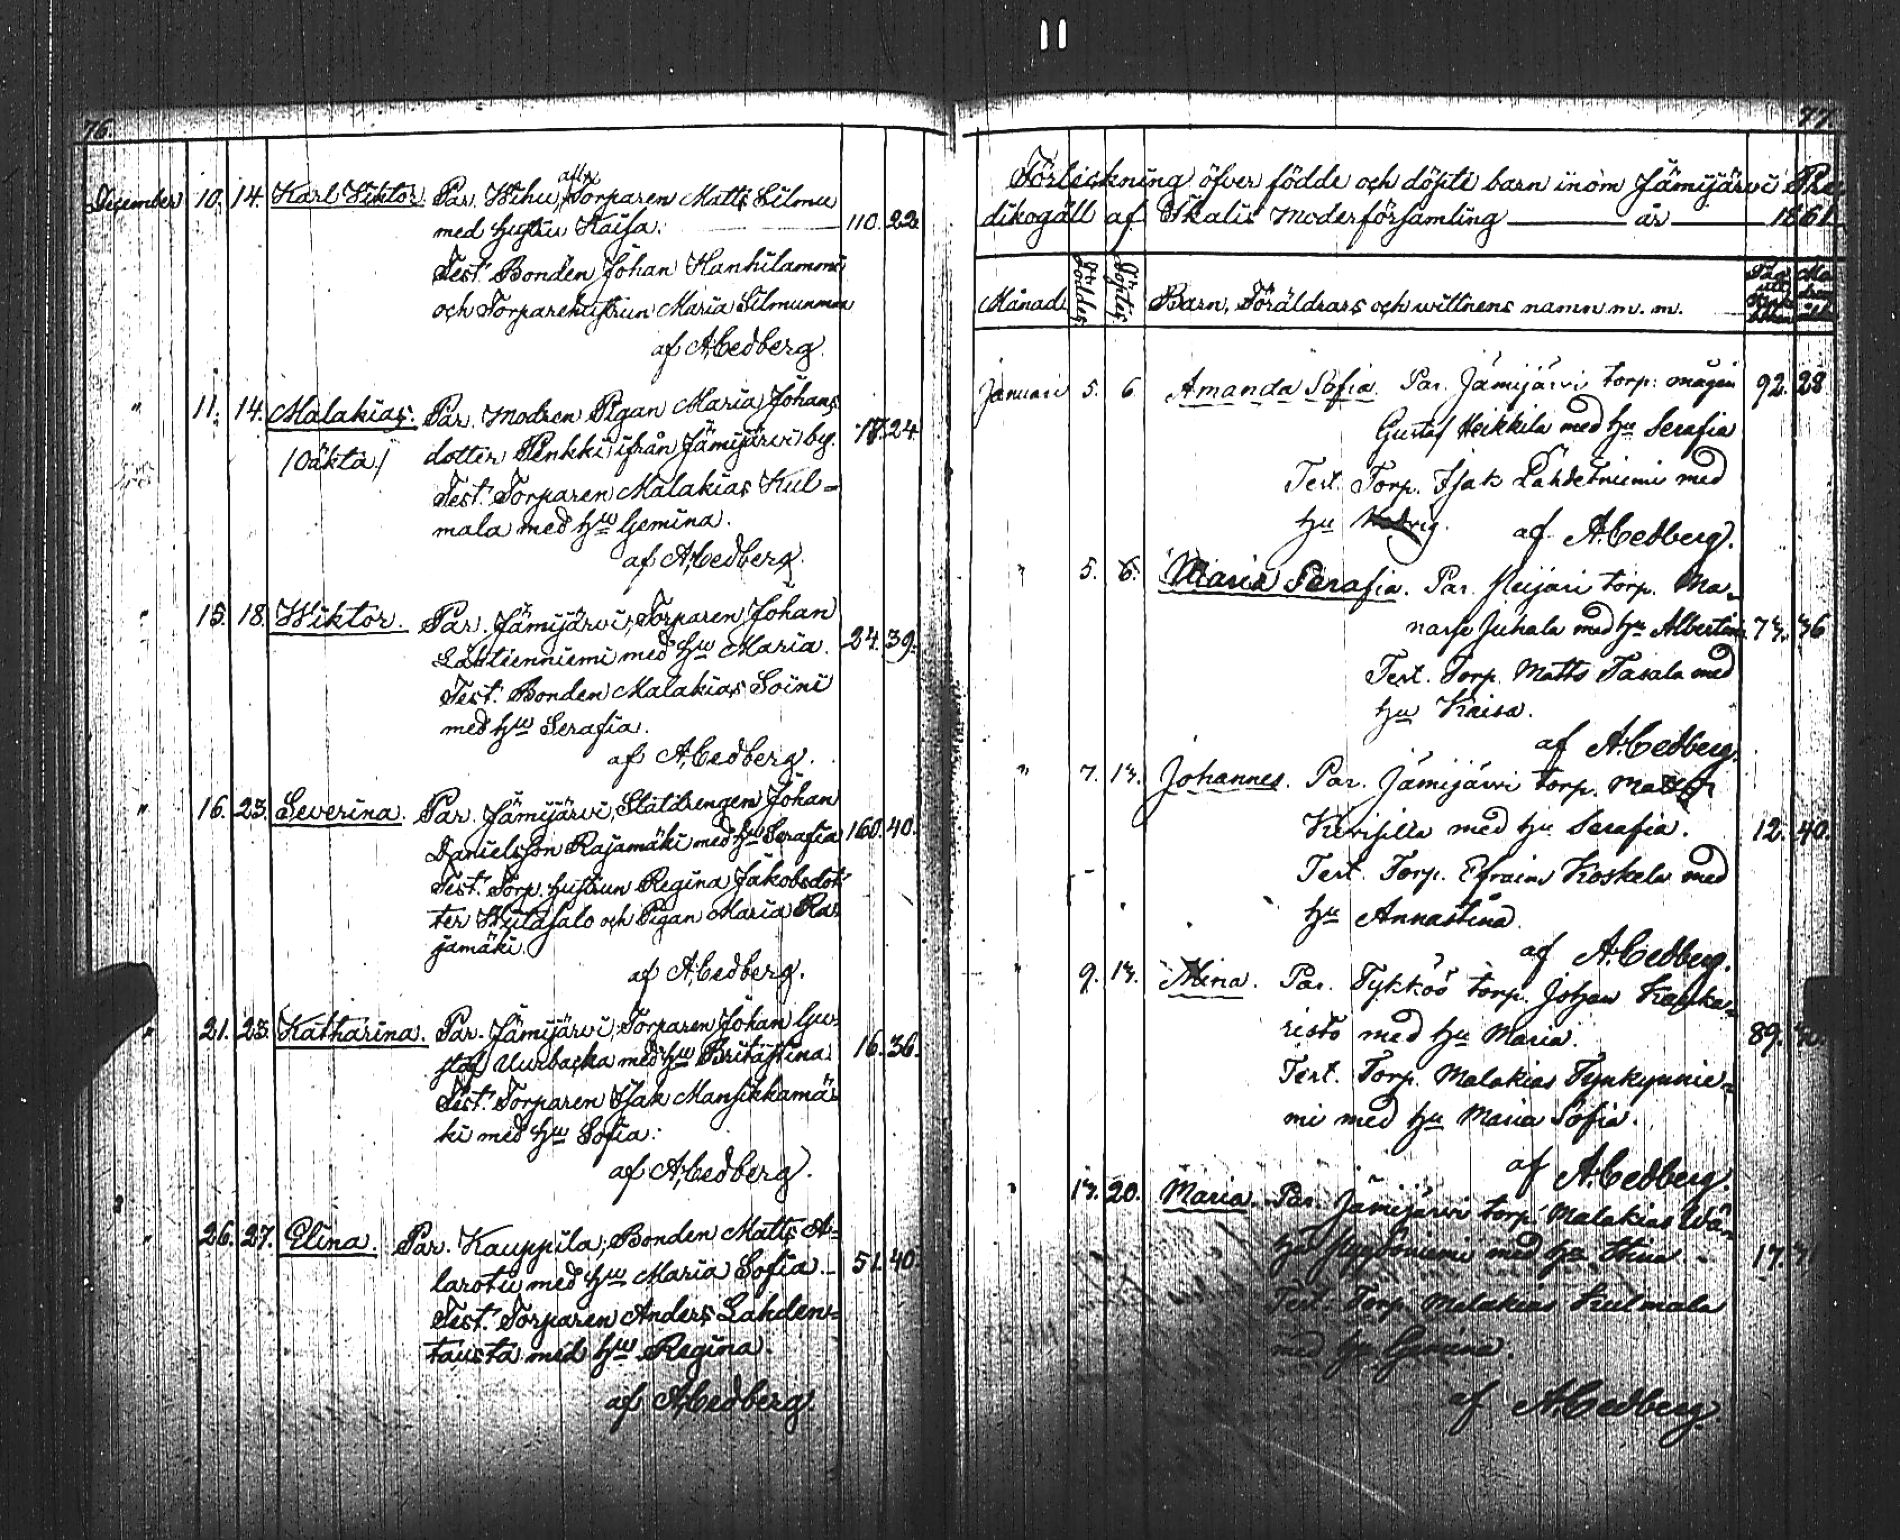 11
76
December 10. 14. Karl Wiktor. Par. Wihu, Torparen Matts Silmu
med hustru Kaisa. 110. 22.
Test. Bonden Johan Hanhilammi
och Torparehustrun Maria Silmunmaa
af A. Cedberg.
" 11. 14. Malakias. Par. modren Pigan Maria Johans
/Oäkta/ dotter Penkki ifrån Jämijärvi by. 17. 24
Test. Torparen Malakias Kul=
mala med hu Gemina.
af A. Cedberg.
" 15. 18. Wiktor. Par. Jämijärvi, Torparen Johan
Lähtienniemi med hu Maria. 24. 39.
Test. Bonden Malakias Soini
med hu Serafia.
af A. Cedberg.
" 16. 23. Severina. Par. Jämijärvi, Statdrengen Johan
Danielsson Rajamäki med hu Serafia 160. 40.
Test. Torp. hustrun Regina Jakobsdot=
ter och Pigan Maria Ra=
jamäki.
af A. Cedberg.
" 21. 23. Katharina. Par. Jämijärvi, Torparen Johan Gu=
staf Uurbacka med hu Britastina. 16. 36.
Test. Torparen Isak Mansikkamä=
ki med hu Sofia.
af A. Cedberg.
" 26. 27. Elina. Par. Kauppila, Bonden Matts A=
larotu med hu Maria Sofia. 51. 40.
Test. Torparen Anders Lahden=
tausta med hu Regina.
af A. Cedberg.
77.
Förteckning öfver födde och döpte barn inom Jämijärvi Pre=
dikogäll af Ikalis Moderförsamling år 1861.
Månad Födde. Döpte. Barn, Föräldrars och wittnens namn m. m.
Januari 5. 6. Amanda Sofia. Par. Jämijärvi torp. mågen 92. 28
Gustaf Heikkilä med hu Serafia
Test. Torp. Isak Lähdetniemi med
hu Hedvig. af A. Cedberg.
" 5. 6. Maria Serafia. Par. Peijari torp. Ma=
nasse Juhala med hu Albertina 74. 36
Test. Torp. Matts Tasala med
hu Kaisa.
af A. Cedberg.
" 7. 13. Johannes. Par. Jämijärvi torp. Matts
Kivisilla med hu Serafia. 12. 40.
Test. Torp. Efraim Koskela med
hu Annastina
af A. Cedberg.
" 9. 13. Mina. Par. Tykköö torp. Johan Kanka=
risto med hu Maria. 89.
Test. Torp. Malakias Tynkynnie=
mi med hu Maria Sofia.
af A. Cedberg.
" 13. 20. Maria. Par. Jämijärvi torp. Malakias Wä=
med hu Stina 17.
Test. Torp. Malakias Kulmala
med hu Gemina.
af A. Cedberg.